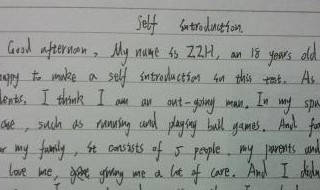 Self introduction.
Good afternoon, My name is ZZH, an 18 years old
happy to make a self introduction in this test. As
dents. I think I am an out-going man. In my spa
one, such as running and playing ball games. And fo
my family, it consists of 5 people. my parents and
love me, giving me a lot of care. And I